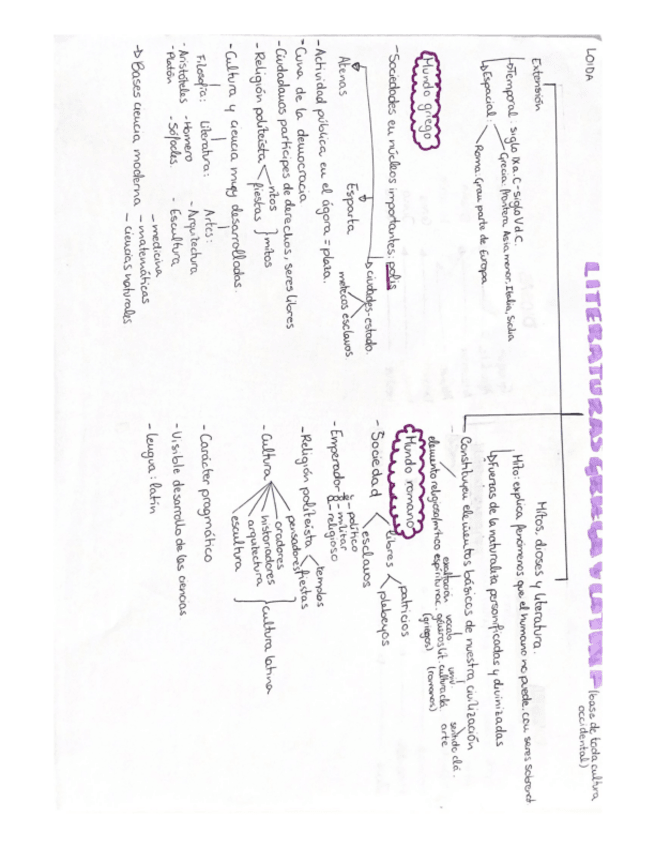 LOIDA
LITERATURAS GRIEGA Y LATINA (base de toda cultura
occidental)
Extensión
Temporal: siglo IX a.C - siglo V d.C.
Espacial: Grecia: frontera Asia menor, Italia, Sicilia
Roma: gran parte de Europa
Mitos, dioses y literatura.
Mito: explica fenómenos que el humano no puede, con seres sobrenat
Fuerzas de la naturaleza personificadas y divinizadas
Constituyen elementos básicos de nuestra civilización
elemento religioso/mítico
exaltación
espiritu nac.
(griegos)
vocab
géneros lit.
univ.
cultura da
(romanos)
sentido clá.
arte
Mundo griego
- Sociedades en núcleos importantes: polis
ciudades-estado.
metecos esclavos
Atenas
Esparta
- Actividad pública en el ágora = plaza.
- Cuna de la democracia
- Ciudadanos partícipes de derechos, seres libres
- Religión politeísta ritos fiestas } mitos
- Cultura y ciencia muy desarrolladas.
Filosofía: Literatura: Artes:
- Aristóteles - Homero - Arquitectura
- Platón - Sófocles - Escultura
→ Bases ciencia moderna - medicina
- matemáticas
- ciencias naturales
Mundo romano
- Sociedad libres patricios
plebeyos
esclavos
- Emperador - político
- militar
- religioso
- Religión politeísta templos
fiestas
- Cultura pensadores
oradores
historiadores
arquitectura
escultura
} cultura latina
- Carácter pragmático
- Visible desarrollo de las ciencias
- lengua: latín